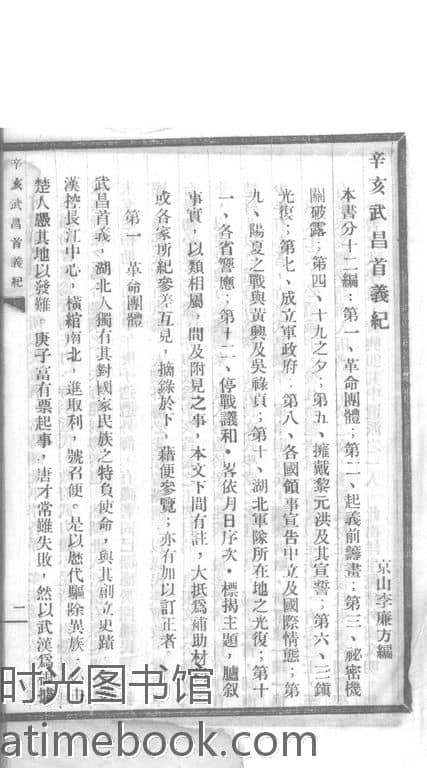 辛亥武昌首義紀
京山李廉方編
本書分十二編:第一、革命團體;第二、起義前籌畫;第三、祕密機
關破露;第四、十九之夕;第五、擁戴黎元洪及其宣誓;第六、三鎮
光復;第七、成立軍政府;第八、各國領事宣告中立及國際情態;第
九、陽夏之戰與黃興及吳祿貞;第十、湖北軍隊所在地之光復;第十
一、各省響應;第十二、停戰議和·畧依月日序次·標揭主題,臚叙
事實,以類相屬,間及附見之事,本文下間有註,大抵爲補助材
或各家所紀參差互見,摘錄於下,藉便參覽;亦有加以訂正者
第一 革命團體
武昌首義,湖北人獨有其對國家民族之特負使命,與其創立史蹟
漢控長江中心,橫綰南北,進取利,號召便。是以歷代驅除異族
楚人憑其地以發難。庚子富有票起事,唐才常雖失敗,然以武漢爲
辛亥武昌首義紀
一
时光图书馆
atimebook.com